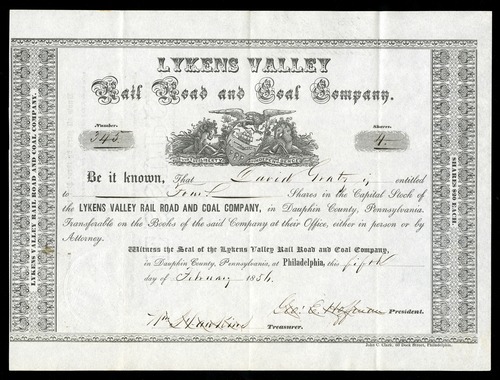 LYKENS VALLEY
Rail Road and Coal Company.
Number.
345
Shares.
4.
Be it known, That David Gratz is entitled
to Four Shares in the Capital Stock of
the LYKENS VALLEY RAIL ROAD AND COAL COMPANY, in Dauphin County, Pennsylvania.
Transferable on the Books of the said Company at their Office, either in person or by
Attorney.
Witness the Seal of the Lykens Valley Rail Road and Coal Company,
in Dauphin County, Pennsylvania, at Philadelphia, this fifth
day of February 1856.
Geo: E. Hoffman President.
Wm Hawkins
Treasurer.
LYKENS VALLEY RAIL ROAD AND COAL COMPANY.
SHARES $20 EACH.
John C. Clark, 60 Dock Street, Philadelphia.